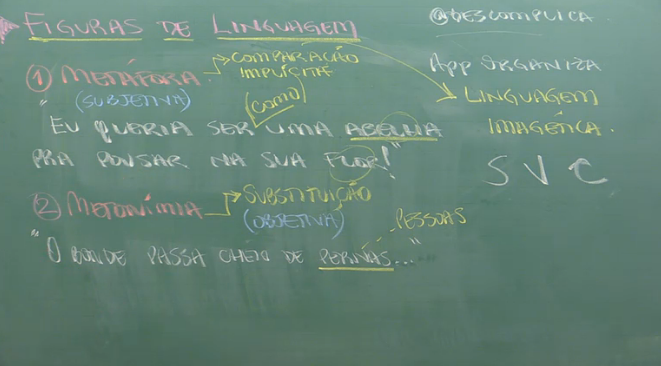 FIGURAS DE LINGUAGEM
① METÁFORA → COMPARAÇÃO
IMPLÍCITA
(SUBJETIVA)
(COMO)
"EU QUERIA SER UMA ABELHA
PRA POUSAR NA SUA FLOR!"
② METONÍMIA → SUBSTITUIÇÃO
(OBJETIVA)
PESSOAS
"O BONDE PASSA CHEIO DE PERNAS..."
@DESCOMPLICA
APP ORGANIZA
LINGUAGEM
IMAGÉTICA.
SVC